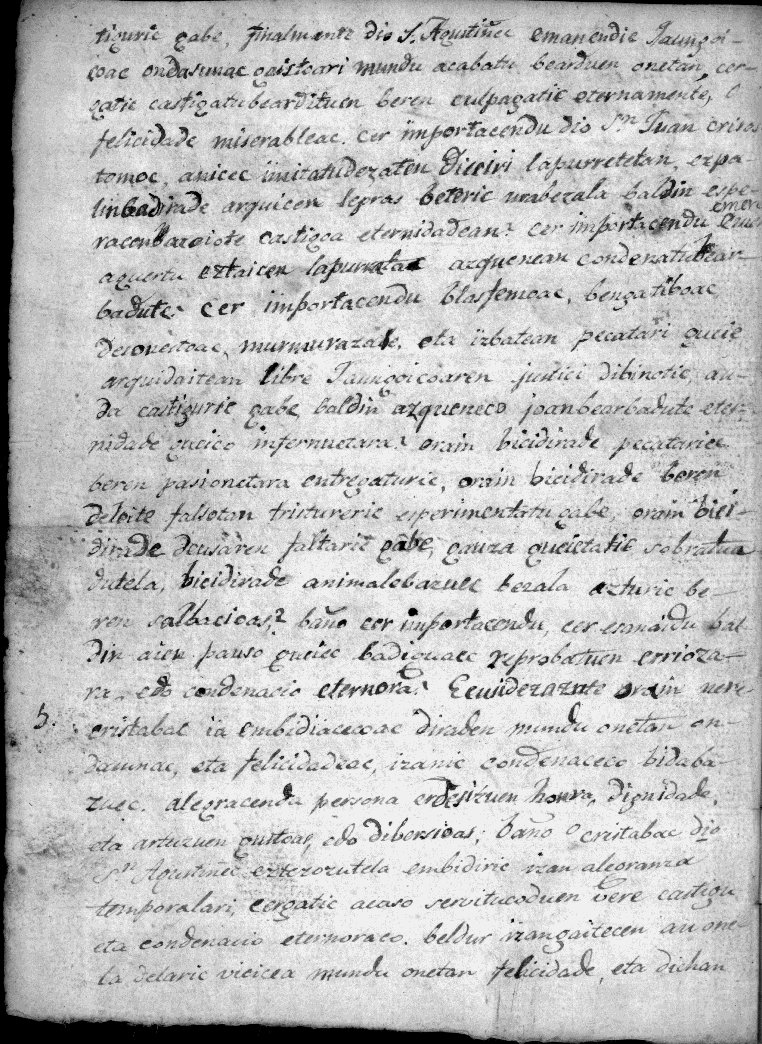 tiguric gabe, finalmente dio S. Agustiñec emanendie Jaungoi-
coac ondasunac gaistoari mundu acabatu bearduen onetan, cer-
gatic castigatubeardituen beren culpagatic eternamente,
felicidade miserableac. cer importacendu dio Sn. Juan crisos
tomoc, anicec imitatudezaten Dieciri lapurretetan, ezpa-
linbadirade arquicen lepras beteric urabezala baldin espe-
racenbazaiote castigoa eternidadean? cer importacendu emen
aguertu eztaicen lapurretac azquenean condenatubear-
badute? cer importacendu blasfemoac, bengatiboac,
desonestoac, murmurazale, eta izbatean pecatari gucie
arquidaitean libre Jaungoicoaren justici dibinotic, au-
da castiguric gabe, baldin azqueneco joanbearbadute eter-
nidade gucico infernuetara? orain bicidirade pecatariec
beren pasionetara entregaturic, orain bicidirade beren
deleite falsotan tristureric esperimentatu gabe, orain bici-
dirade deusaren faltaric gabe, gauza gucietatic sobratua
dutela, bicidirade animalebazuec bezala azturic be-
ren salbacioas? baño cer importacendu, cer esanaidu bal
din aien pauso guciec badiguaec reprobatuen errioza-
ra, edo condenacio eternora? Ecusidezazute orain nere
5. cristabac ia embidiacecoac diraden mundu onetan on-
dasunac, eta felicidadeac, izanic condenaceco bidaba-
zuec. alegracenda persona erdesizuen honra, dignidade,
eta artuzuen gustoas, edo dibersioas; baño o cristabac dio
Sn. Agustiñec eztezozutela embidiric izan alegranza
temporalari, cergatic acaso servitucoduen bere castigu
eta condenacio eternoraco. beldur izangaitecen au one-
la delaric vicicea mundu onetan felicidade, eta dichan